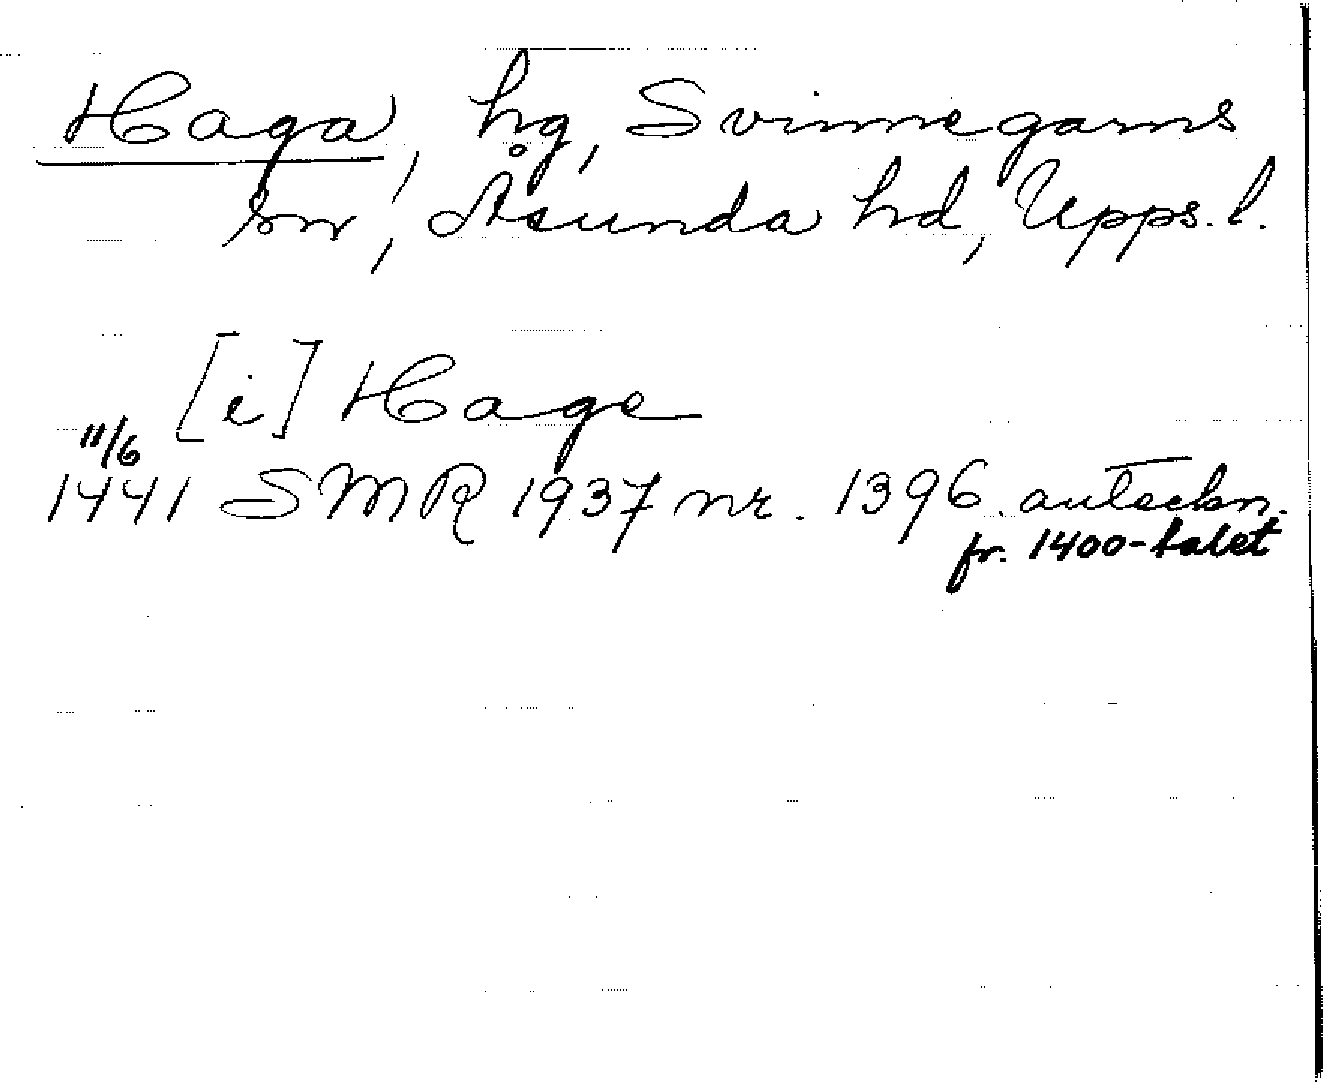 Haga, hg, Svinnegarns
sn, Åsunda hd, Upps. l.
[i] Hage
11/6
1441 SMR 1937 nr. 1396. anteckn.
fr. 1400-talet